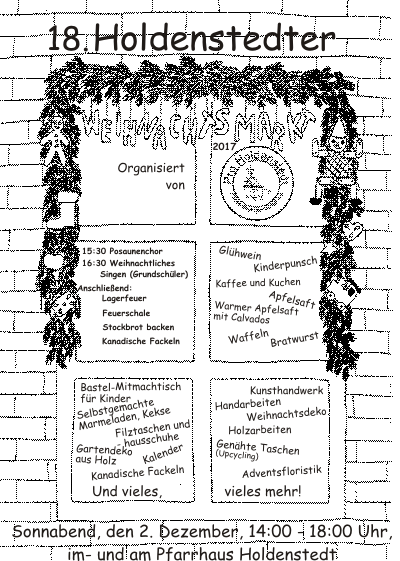 18. Holdenstedter
WEIHNACHTSMARKT
2017
Organisiert
von
Pro Holdenstedt
15:30 Posaunenchor
16:30 Weihnachtliches
Singen (Grundschüler)
Anschließend:
Lagerfeuer
Feuerschale
Stockbrot backen
Kanadische Fackeln
Glühwein
Kinderpunsch
Kaffee und Kuchen
Apfelsaft
Warmer Apfelsaft
mit Calvados
Waffeln
Bratwurst
Bastel-Mitmachtisch
für Kinder
Selbstgemachte
Marmeladen, Kekse
Filztaschen und
-hausschuhe
Gartendeko
aus Holz
Kalender
Kanadische Fackeln
Und vieles,
Kunsthandwerk
Handarbeiten
Weihnachtsdeko
Holzarbeiten
Genähte Taschen
(Upcycling)
Adventsfloristik
vieles mehr!
Sonnabend, den 2. Dezember, 14:00 - 18:00 Uhr,
im- und am Pfarrhaus Holdenstedt